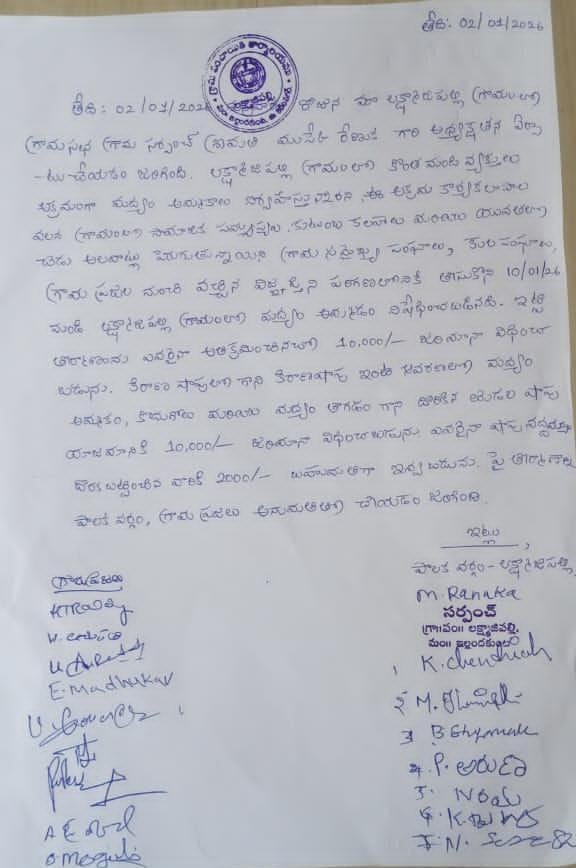 తేది: 02/01/2026
గ్రామ పంచాయితి కార్యాలయము
తేది: 02/01/2026 రోజున మా లక్ష్మాజిపల్లి గ్రామంలో
గ్రామసభ గ్రామ సర్పంచ్ శ్రీమతి రేణుక గారి అధ్యక్షతన ఏర్పా
-టు చేయడం జరిగింది. లక్ష్మాజిపల్లి గ్రామంలో కొంత మంది వ్యక్తులు
అక్రమంగా మద్యం అమ్మకాలు నిర్వహిస్తున్నారని, ఈ అక్రమ కార్యకలాపాల
వలన గ్రామంలో సామాజిక సమస్యలు, కుటుంబ కలహాలు మరియు యువతలో
చెడు అలవాట్లు పెరుగుతున్నాయని గ్రామ సమైక్య సంఘాలు, కుల సంఘాలు,
గ్రామ ప్రజల నుంచి వచ్చిన విజ్ఞప్తిని పరిగణలోనికి తీసుకొని 10/01/26
నుండి లక్ష్మాజిపల్లి గ్రామంలో మద్యం అమ్మడం నిషేధించబడినది. ఇట్టి
తీర్మాణంను ఎవరైనా అతిక్రమించినచో 10,000/- జరిమానా విధించ
బడును. కిరాణా షాపులో గాని కిరాణషాపు ఇంటి ఆవరణలో మద్యం
అమ్మకం, కొనుగోలు మరియు మద్యం తాగడం గాని జరిగిన యెడల షాపు
యాజమానికి 10,000/- జరిమానా విధించబడును ఎవరైనా షాపు
పట్టించిన వారికి 2000/- బహుమతిగా ఇవ్వబడును. పై తీర్మాణాలు
పాలక వర్గం, గ్రామ ప్రజలు అనుమతితో చేయడం జరిగింది.
ఇట్లు,
పాలక వర్గం - లక్ష్మాజిపల్లి
గ్రామప్రజలు
M. Ranaka
సర్పంచ్
గ్రా||పం|| లక్ష్మాజిపల్లి,
మం||
E. Madhukar
1 K. Chendraiah
2 M.
3 B
4 P. అరుణ
5
6 K.
7 N.